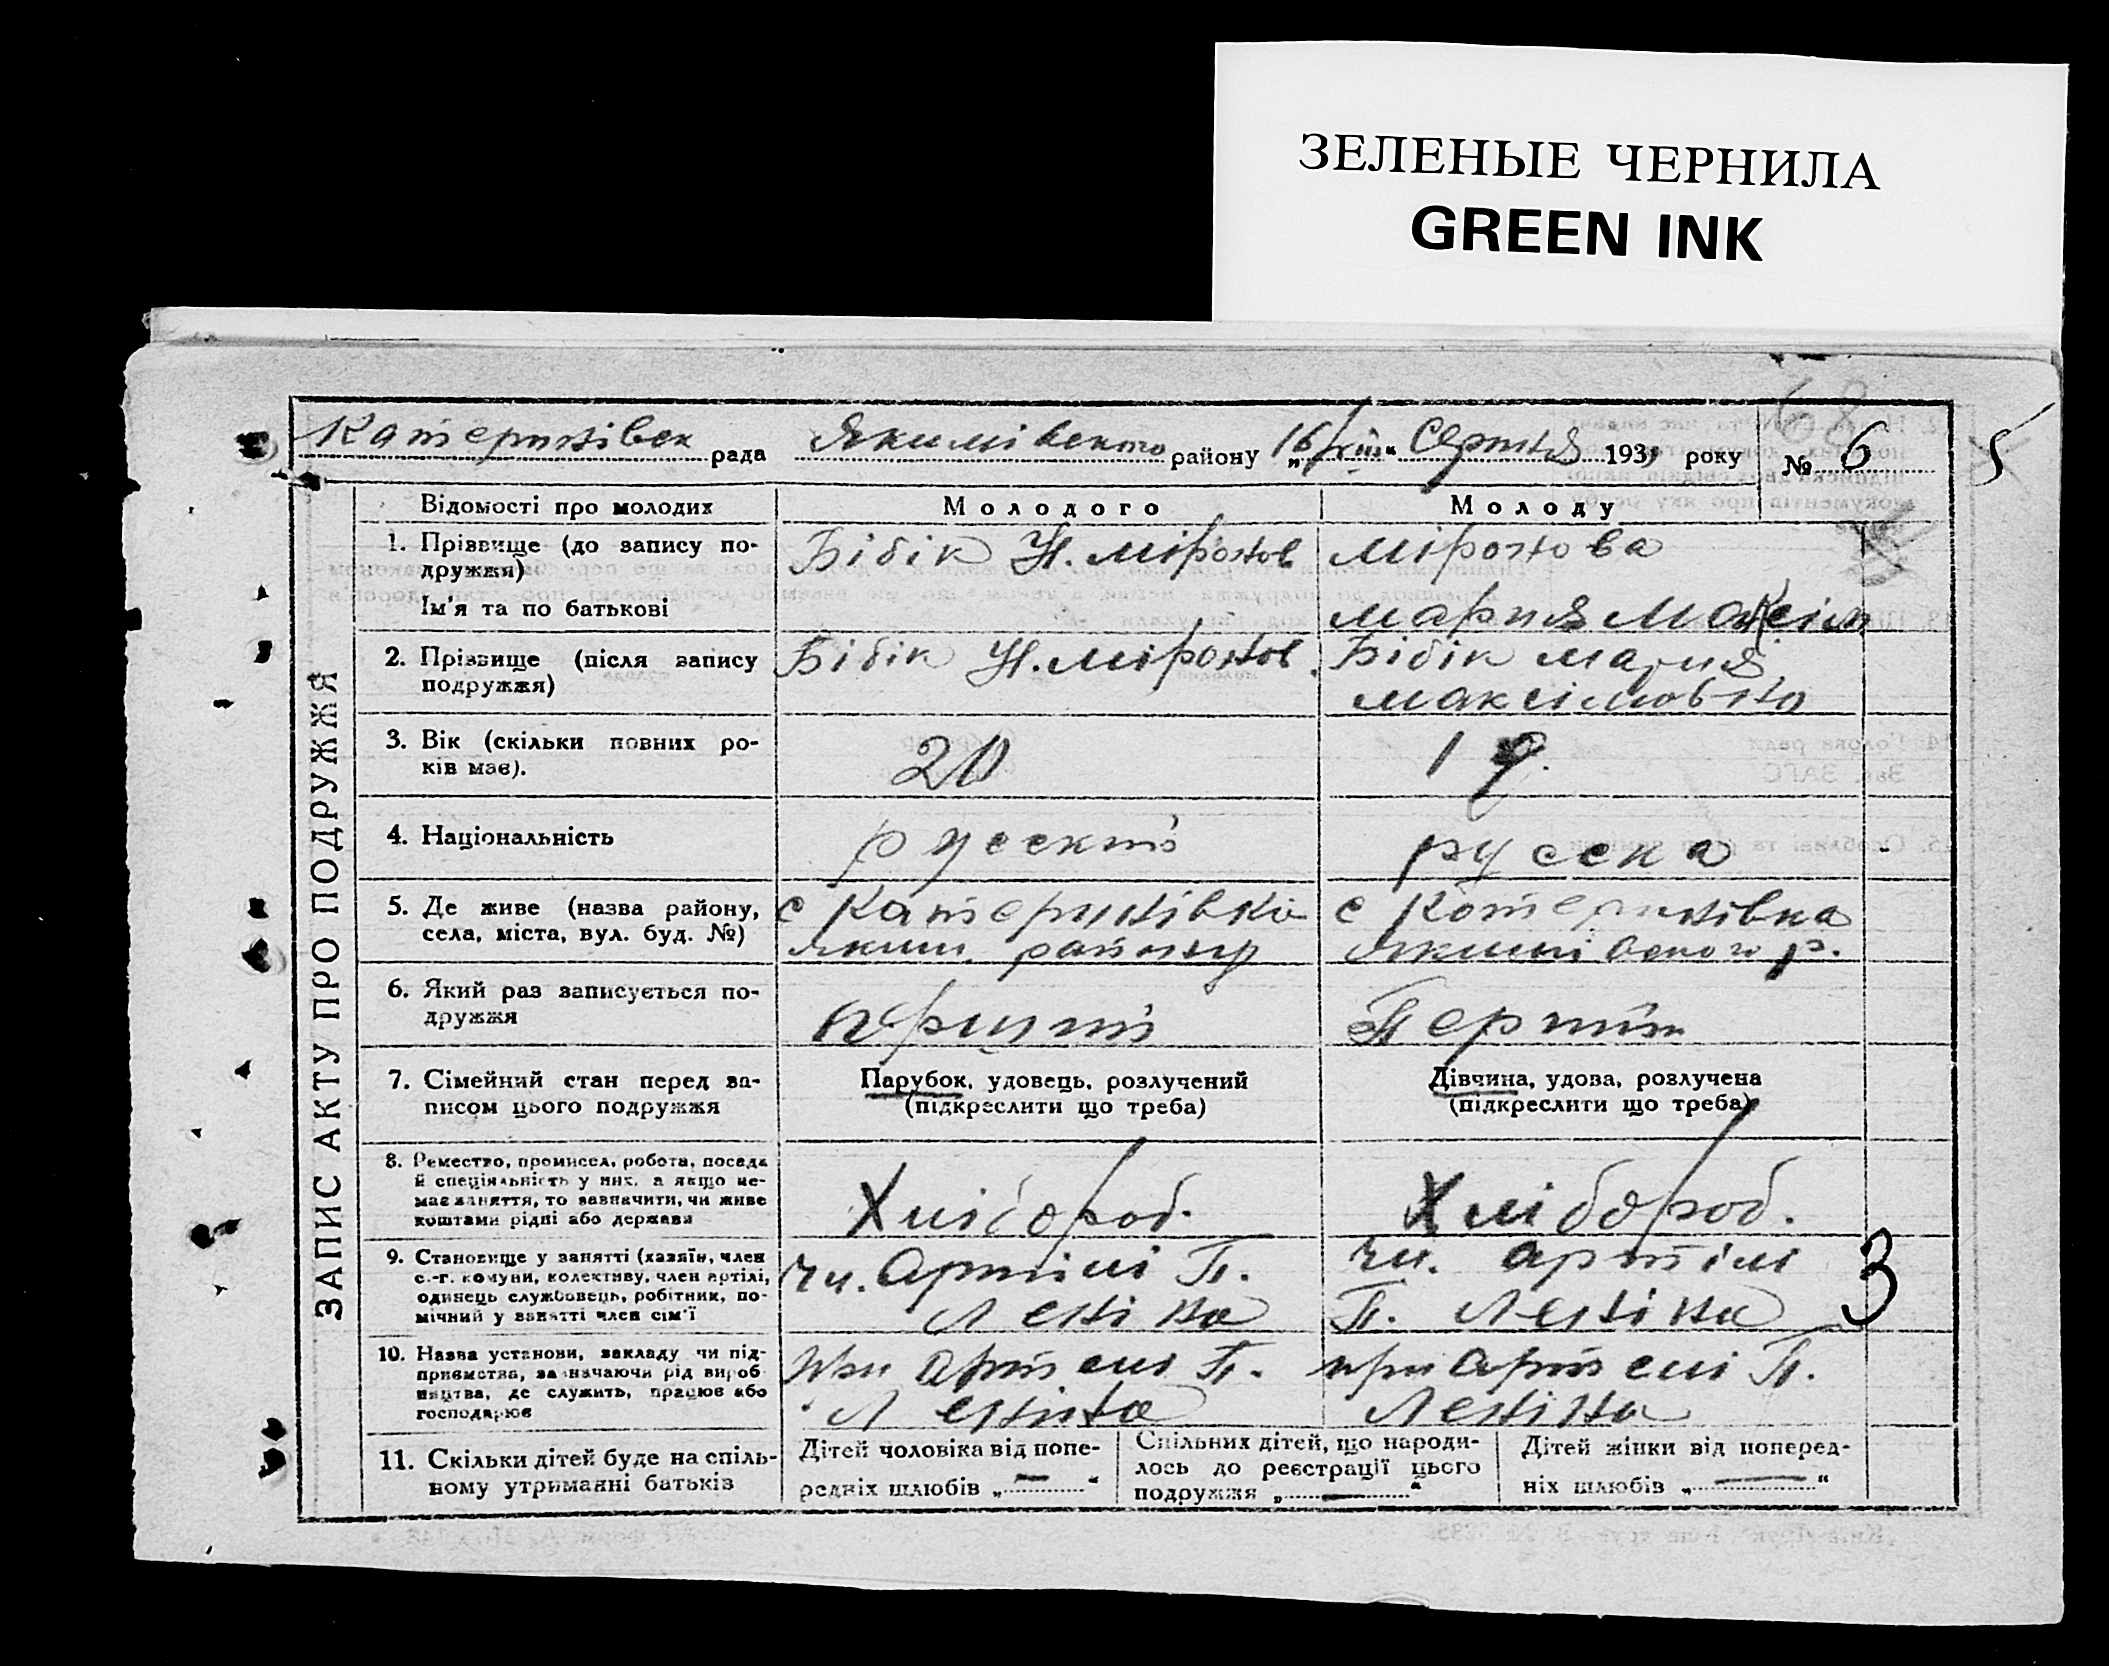 ЗЕЛЕНЫЕ ЧЕРНИЛА
GREEN INK
68
Катеринівск рада Якимівского району 16/VIII Серпня 193 року № 6
5
ЗАПИС АКТУ ПРО ПОДРУЖЖЯ
Відомості про молодих
Молодого
Молоду
1. Прізвище (до запису по-
дружжя)
Ім'я та по батькові
Бібік Н. Міронов
Міронова
Мария Максім
2. Прізвище (після запису
подружжя)
Бібік Н. Міронов.
Бібік Мария
Максімовна
3. Вік (скільки повних ро-
ків має).
20
19.
4. Національність
руский
русска
5. Де живе (назва району,
села, міста, вул. буд. №)
с Катеринівка
Яким. району
с Катеринівка
Якимівского р.
6. Який раз записується по-
дружжя
Перший
7. Сімейний стан перед за-
писом цього подружжя
Парубок, удовець, розлучений
(підкреслити що треба)
Дівчина, удова, розлучена
(підкреслити що треба)
8. Ремество, промисел, робота, посада
й спеціяльність у них, а якщо не-
має заняття, то зазначити, чи живе
коштами рідні або держави
Хлібороб.
Хлібороб.
9. Становище у занятті (хазяїн, член
с.-г. комуни, колективу, член артілі,
одинець службовець, робітник, по-
мічний у занятті член сім'ї
чл. Артілі П.
Леніна
чл. артілі
П. Леніна
3
10. Назва установи, закладу чи під-
приємства, зазначаючи рід вироб
ництва, де служить, працює або
господарює
при Артелі П.
Леніна
при Артелі П.
Леніна
11. Скільки дітей буде на спіль-
ному утриманні батьків
Дітей чоловіка від попе-
редніх шлюбів „ — “
Спільних дітей, що народи-
лось до реєстрації цього
подружжя „ — “
Дітей жінки від поперед-
ніх шлюбів „ — “